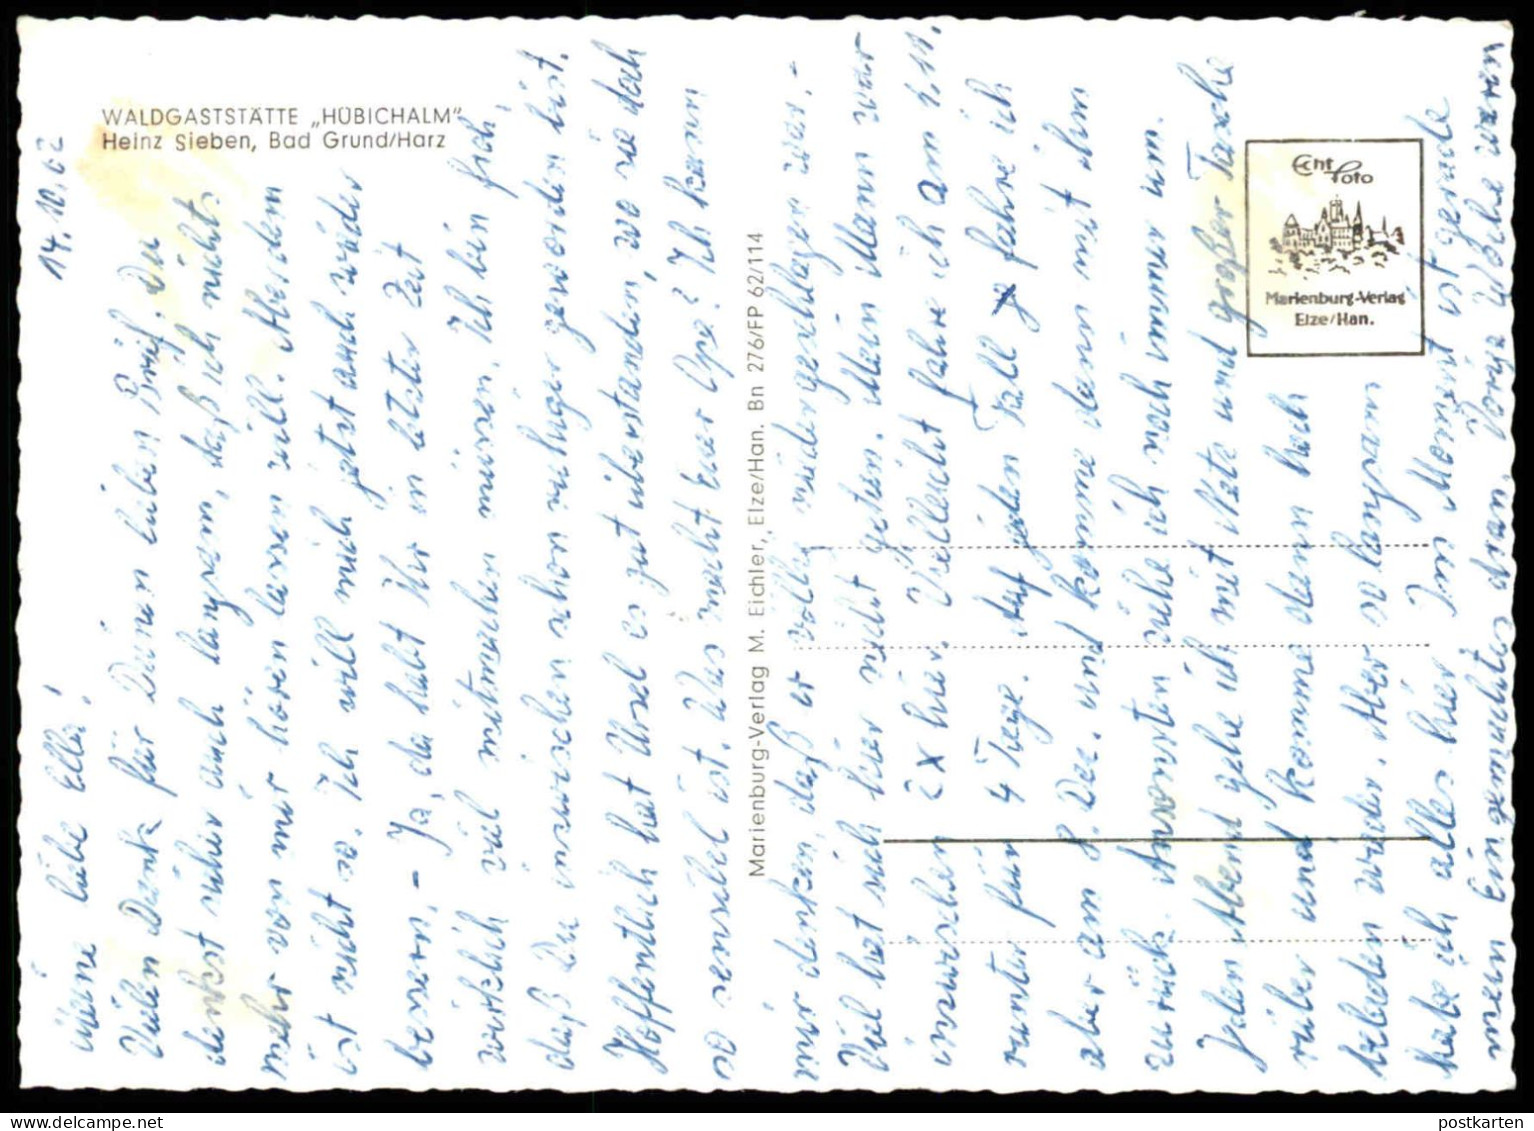 WALDGASTSTÄTTE „HÜBICHALM"
Heinz Sieben, Bad Grund/Harz
14.10.62
Meine liebe Elli!
Vielen Dank für Deinen lieben Brief. Du
denkst sicher auch langsam, daß ich nichts
mehr von mir hören lassen will. Aber dem
ist nicht so. Ich will mich jetzt auch wieder
bessern. - Ja, da habt Ihr in letzter Zeit
wirklich viel mitmachen müssen. Ich bin froh,
daß Du inzwischen schon ruhiger geworden bist.
Hoffentlich hat Ursel es gut überstanden, wo sie doch
so sensibel ist. Was macht Euer Opa? Ich kann
mir denken, daß er völlig niedergeschlagen war. -
Viel hat sich hier nicht getan. Mein Mann war
inzwischen 2x hier. Vielleicht fahre ich am 1.11.
runter für 4 Tage. Auf jeden Fall fahre ich
aber am 8. Dez. und komme dann mit ihm
zurück. Ansonsten ruhe ich noch immer um.
Jeden Abend gehe ich mit Kete und großer Tasche
rüber und komme dann hoch
beladen wieder. Aber so langsam
habe ich alles hier. Im Moment ist gerade
mein Eingemachtes dran. Vorige Woche waren
Marienburg-Verlag M. Eichler, Elze/Han. Bn 276/FP 62/114
Echt
Foto
Marienburg-Verlag
Elze/Han.
postkarten